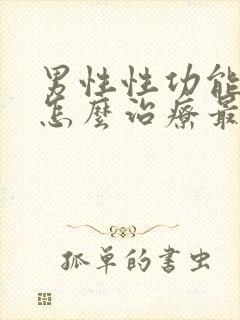 男性性功能
怎麼治療最
孤單的書虫